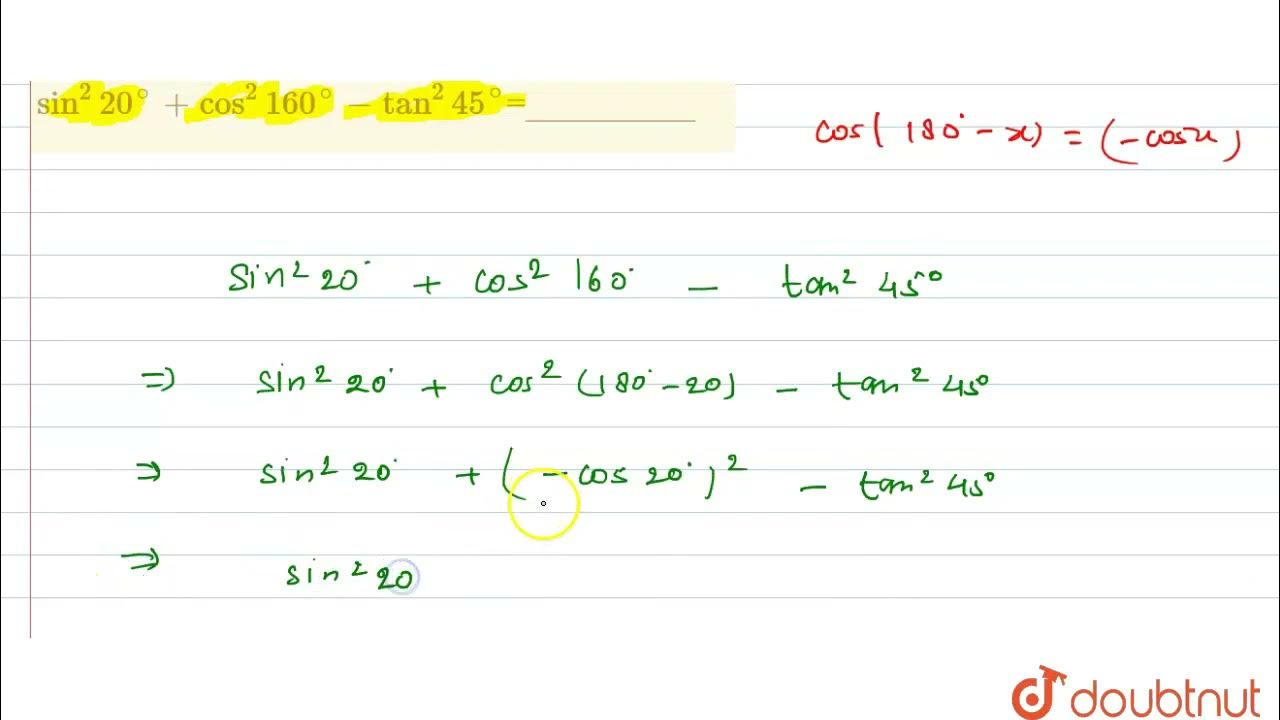 sin² 20° + cos² 160° − tan² 45°=__________
cos( 180° - x) = (- cosx)
Sin² 20° + cos² 160° - tan² 45°
=) sin² 20° + cos² (180° - 20) - tan² 45°
⇒ sin² 20° + ( - cos 20° )² - tan² 45°
⇒ sin² 20
doubtnut